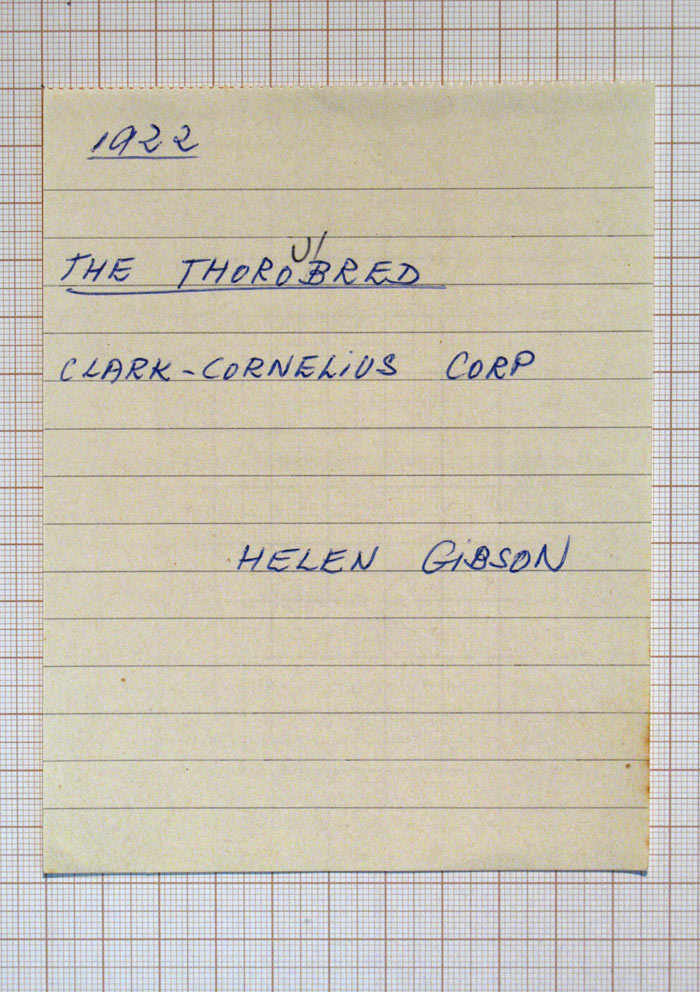 1922
THE THOROUBRED
CLARK-CORNELIUS CORP
HELEN GIBSON